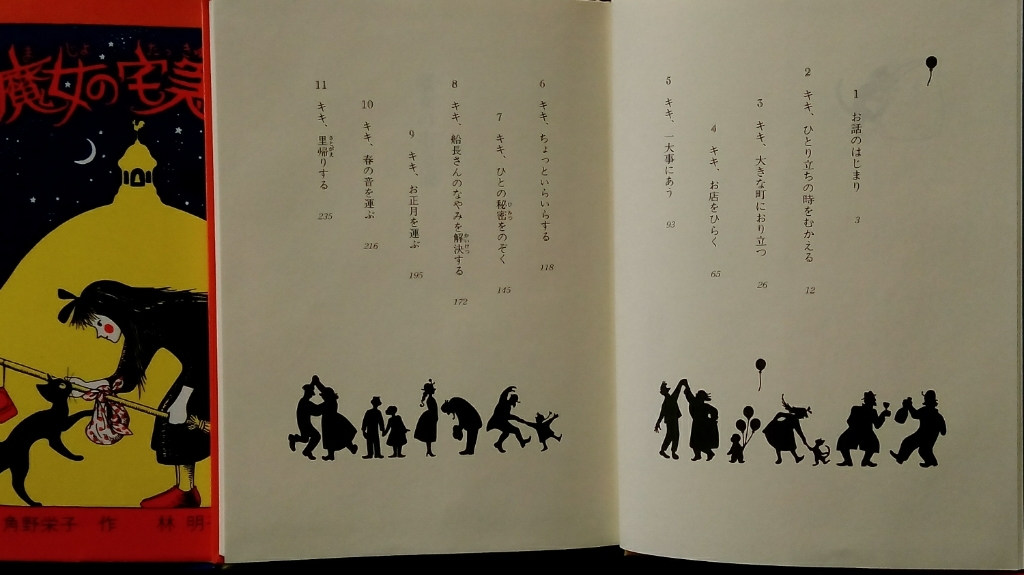 魔女の宅急
ま じょ たっき
角野栄子 作 林 明
1 お話のはじまり 3
2 キキ、ひとり立ちの時をむかえる 12
3 キキ、大きな町におり立つ 26
4 キキ、お店をひらく 65
5 キキ、一大事にあう 93
6 キキ、ちょっといらいらする 118
7 キキ、ひとの秘密をのぞく 145
ひみつ
8 キキ、船長さんのなやみを解決する 172
かいけつ
9 キキ、お正月を運ぶ 195
10 キキ、春の音を運ぶ 216
11 キキ、里帰りする 235
さとがえ